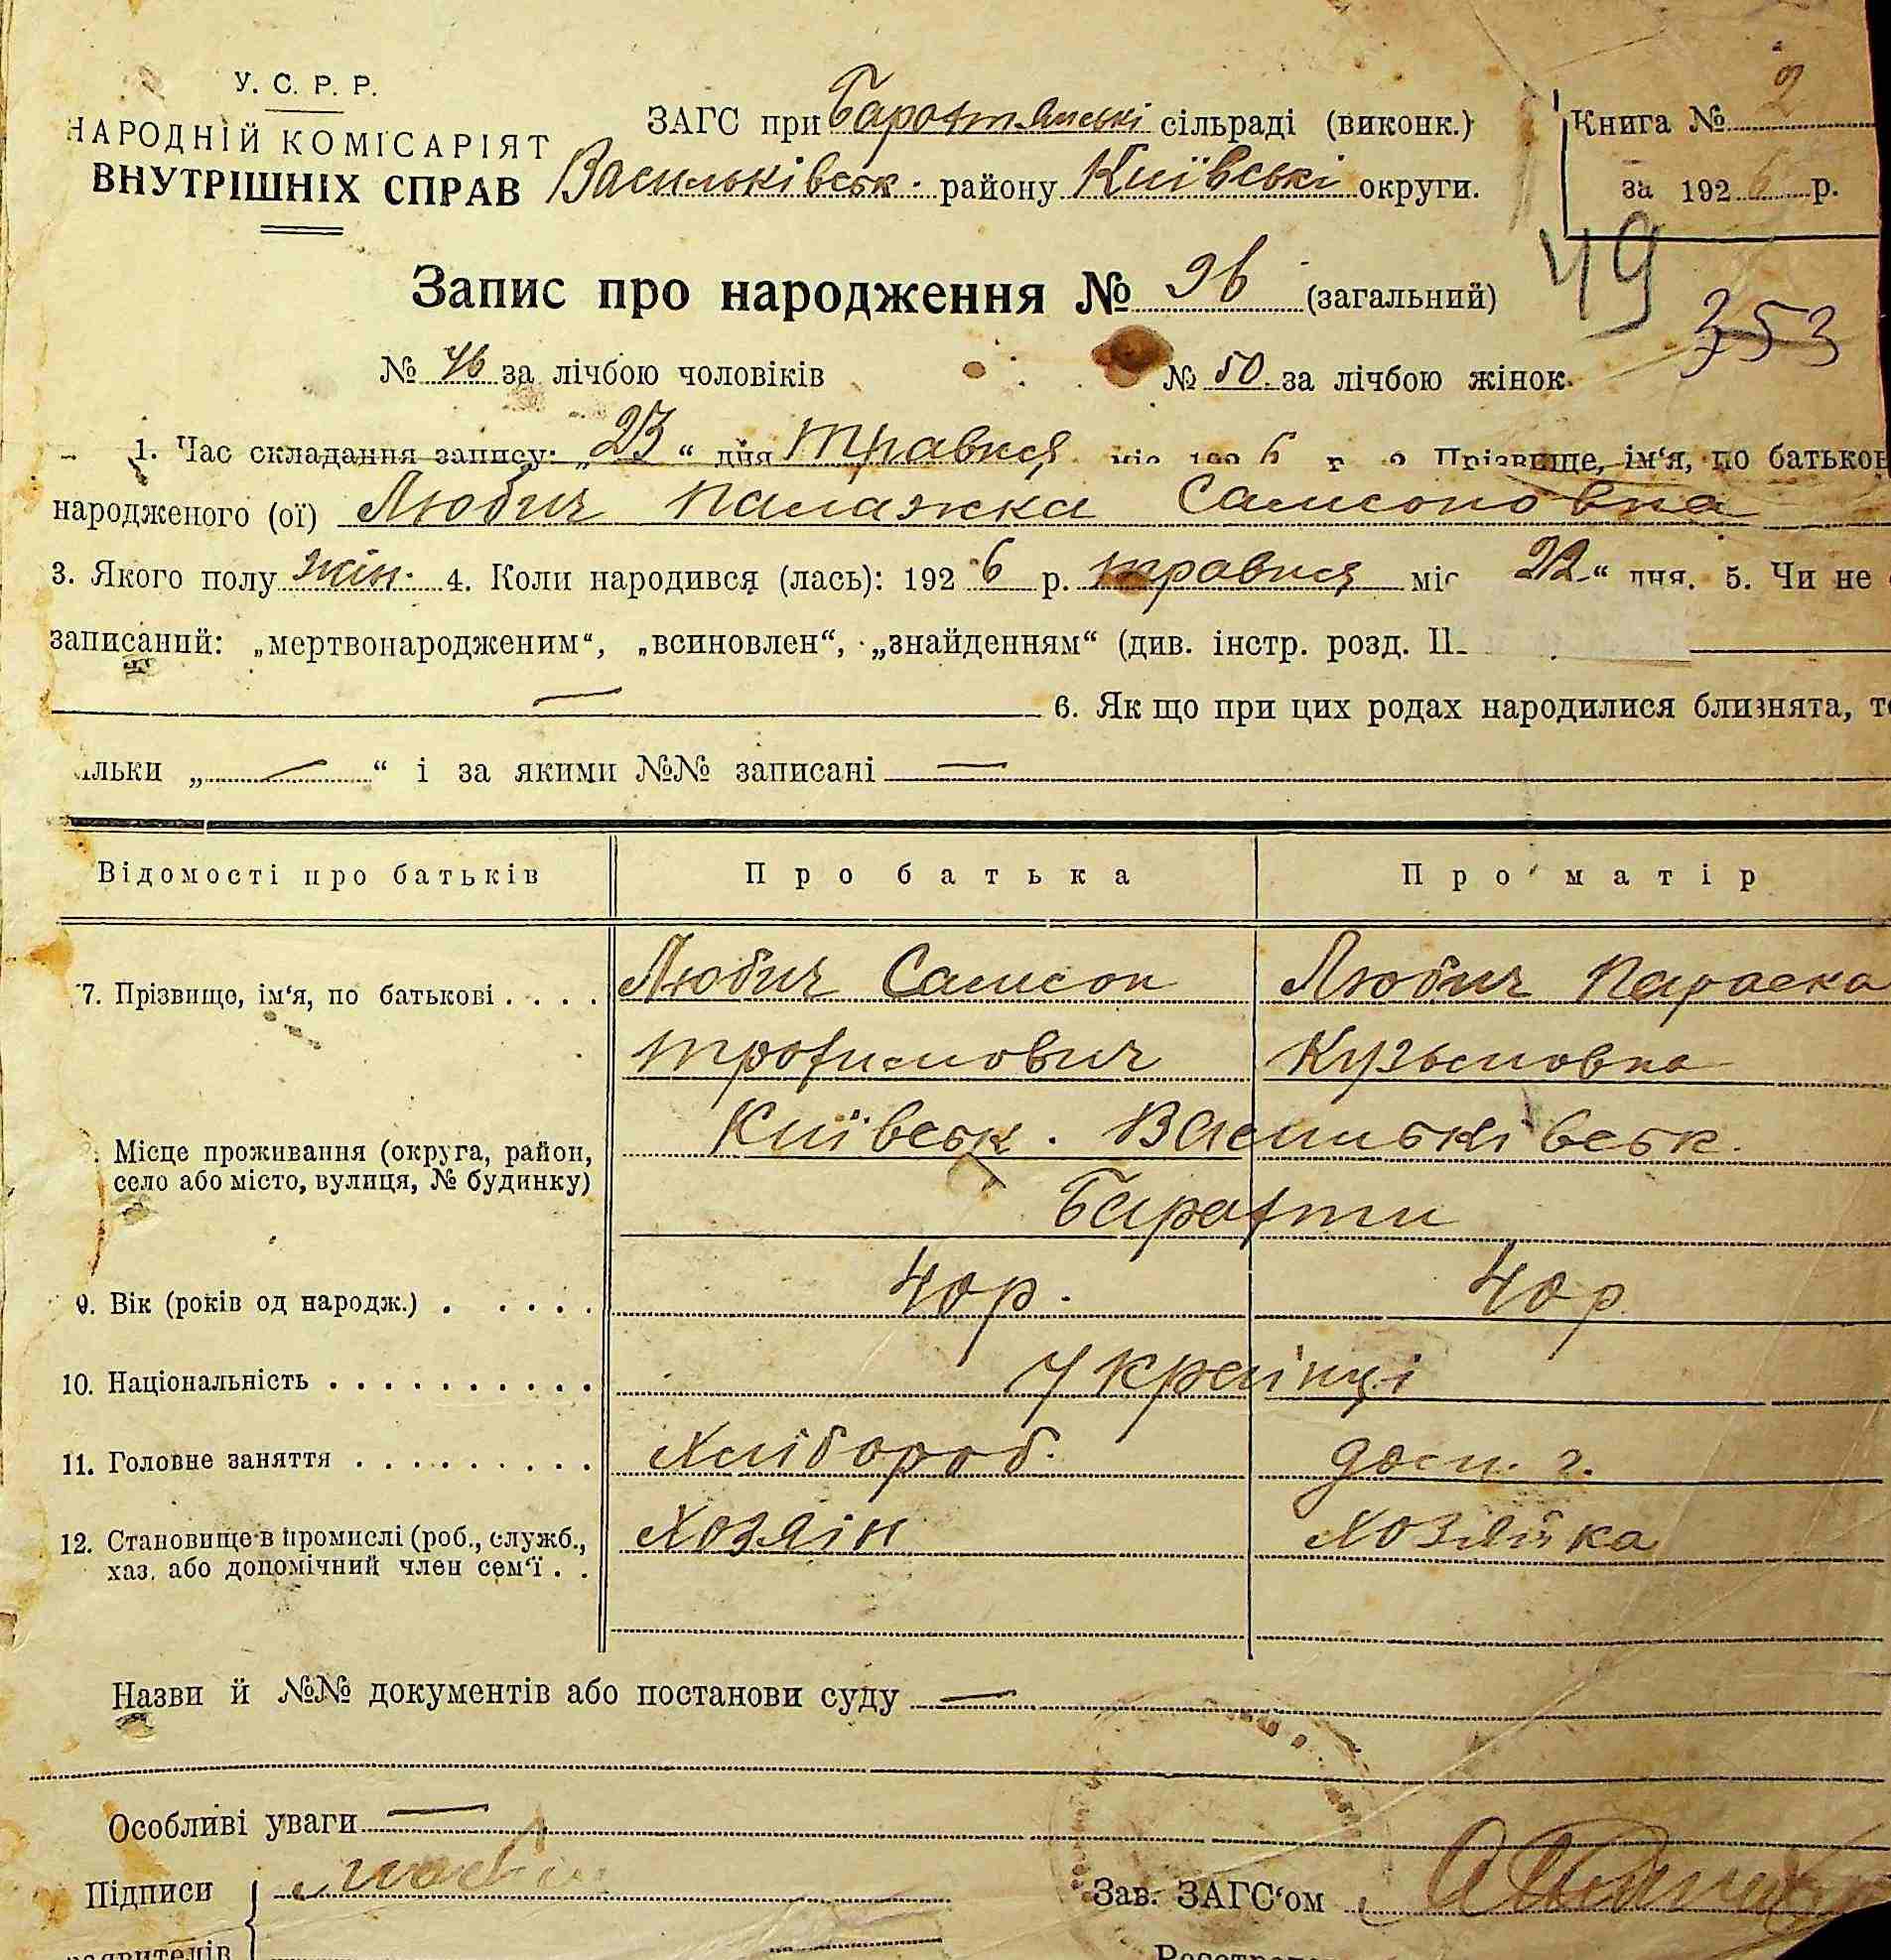 У. С. Р. Р.
НАРОДНІЙ КОМІСАРІЯТ
ВНУТРІШНІХ СПРАВ
ЗАГС при Барахтянські сільраді (виконк.)
Васильківськ. району Київські округи.
Книга № 2
за 1926 р.
49
353
Запис про народження № 96 (загальний)
№ 46 за лічбою чоловіків № 50. за лічбою жінок.
1. Час складання запису: „23“ дня Травня міс. 192 6 р. 2. Прізвище, ім‘я, по батьков
народженого (ої) Любич Палажка Самсоновна
3. Якого полу жін. 4. Коли народився (лась): 192 6 р. травня міс 22 “ дня. 5. Чи не
записаний: „мертвонародженим“, „всиновлен“, „знайденням“ (див. інстр. розд. II.
— 6. Як що при цих родах народилися близнята, то
ільки „ — “ і за якими №№ записані —
Відомості про батьків Про батька Про матір
7. Прізвище, ім‘я, по батькові . . . . Любич Самсон Любич Параска
Трофимович Кузьмовна
Місце проживання (округа, район, Київськ. Васильківськ.
село або місто, вулиця, № будинку) Барахти
9. Вік (років од народж.) . . . . . 40 р. 40 р
10. Національність . . . . . . . . . . Українці
11. Головне заняття . . . . . . . . . Хлібороб. дом. г.
12. Становище в промислі (роб., служб., Хозяін Хозяйка
хаз. або допомічний член сем‘ї . .
Назви й №№ документів або постанови суду —
Особливі уваги —
Підписи
Зав. ЗАГС‘ом
заявителів